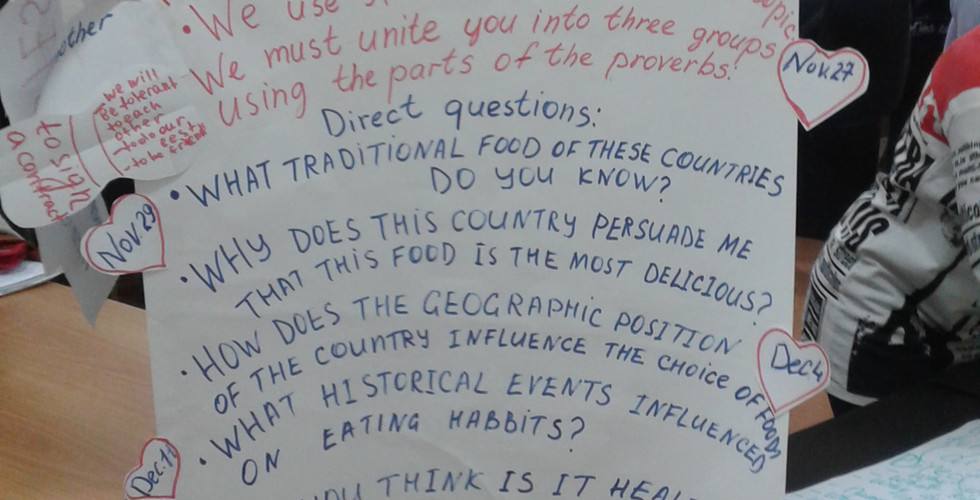 • We use
We must unite you into three groups
using the parts of the proverbs!
Direct questions:
• WHAT TRADITIONAL FOOD OF THESE COUNTRIES
DO YOU KNOW?
• WHY DOES THIS COUNTRY PERSUADE ME
THAT THIS FOOD IS THE MOST DELICIOUS?
• HOW DOES THE GEOGRAPHIC POSITION
OF THE COUNTRY INFLUENCE THE CHOICE OF FOOD?
• WHAT HISTORICAL EVENTS INFLUENCED
ON EATING HABBITS?
YOU THINK IS IT
Nov.27
Nov.29
Dec.4
Dec.11
other
to sign
a contract
we will
be tolerant
to each
other
- to do our
best
- to be